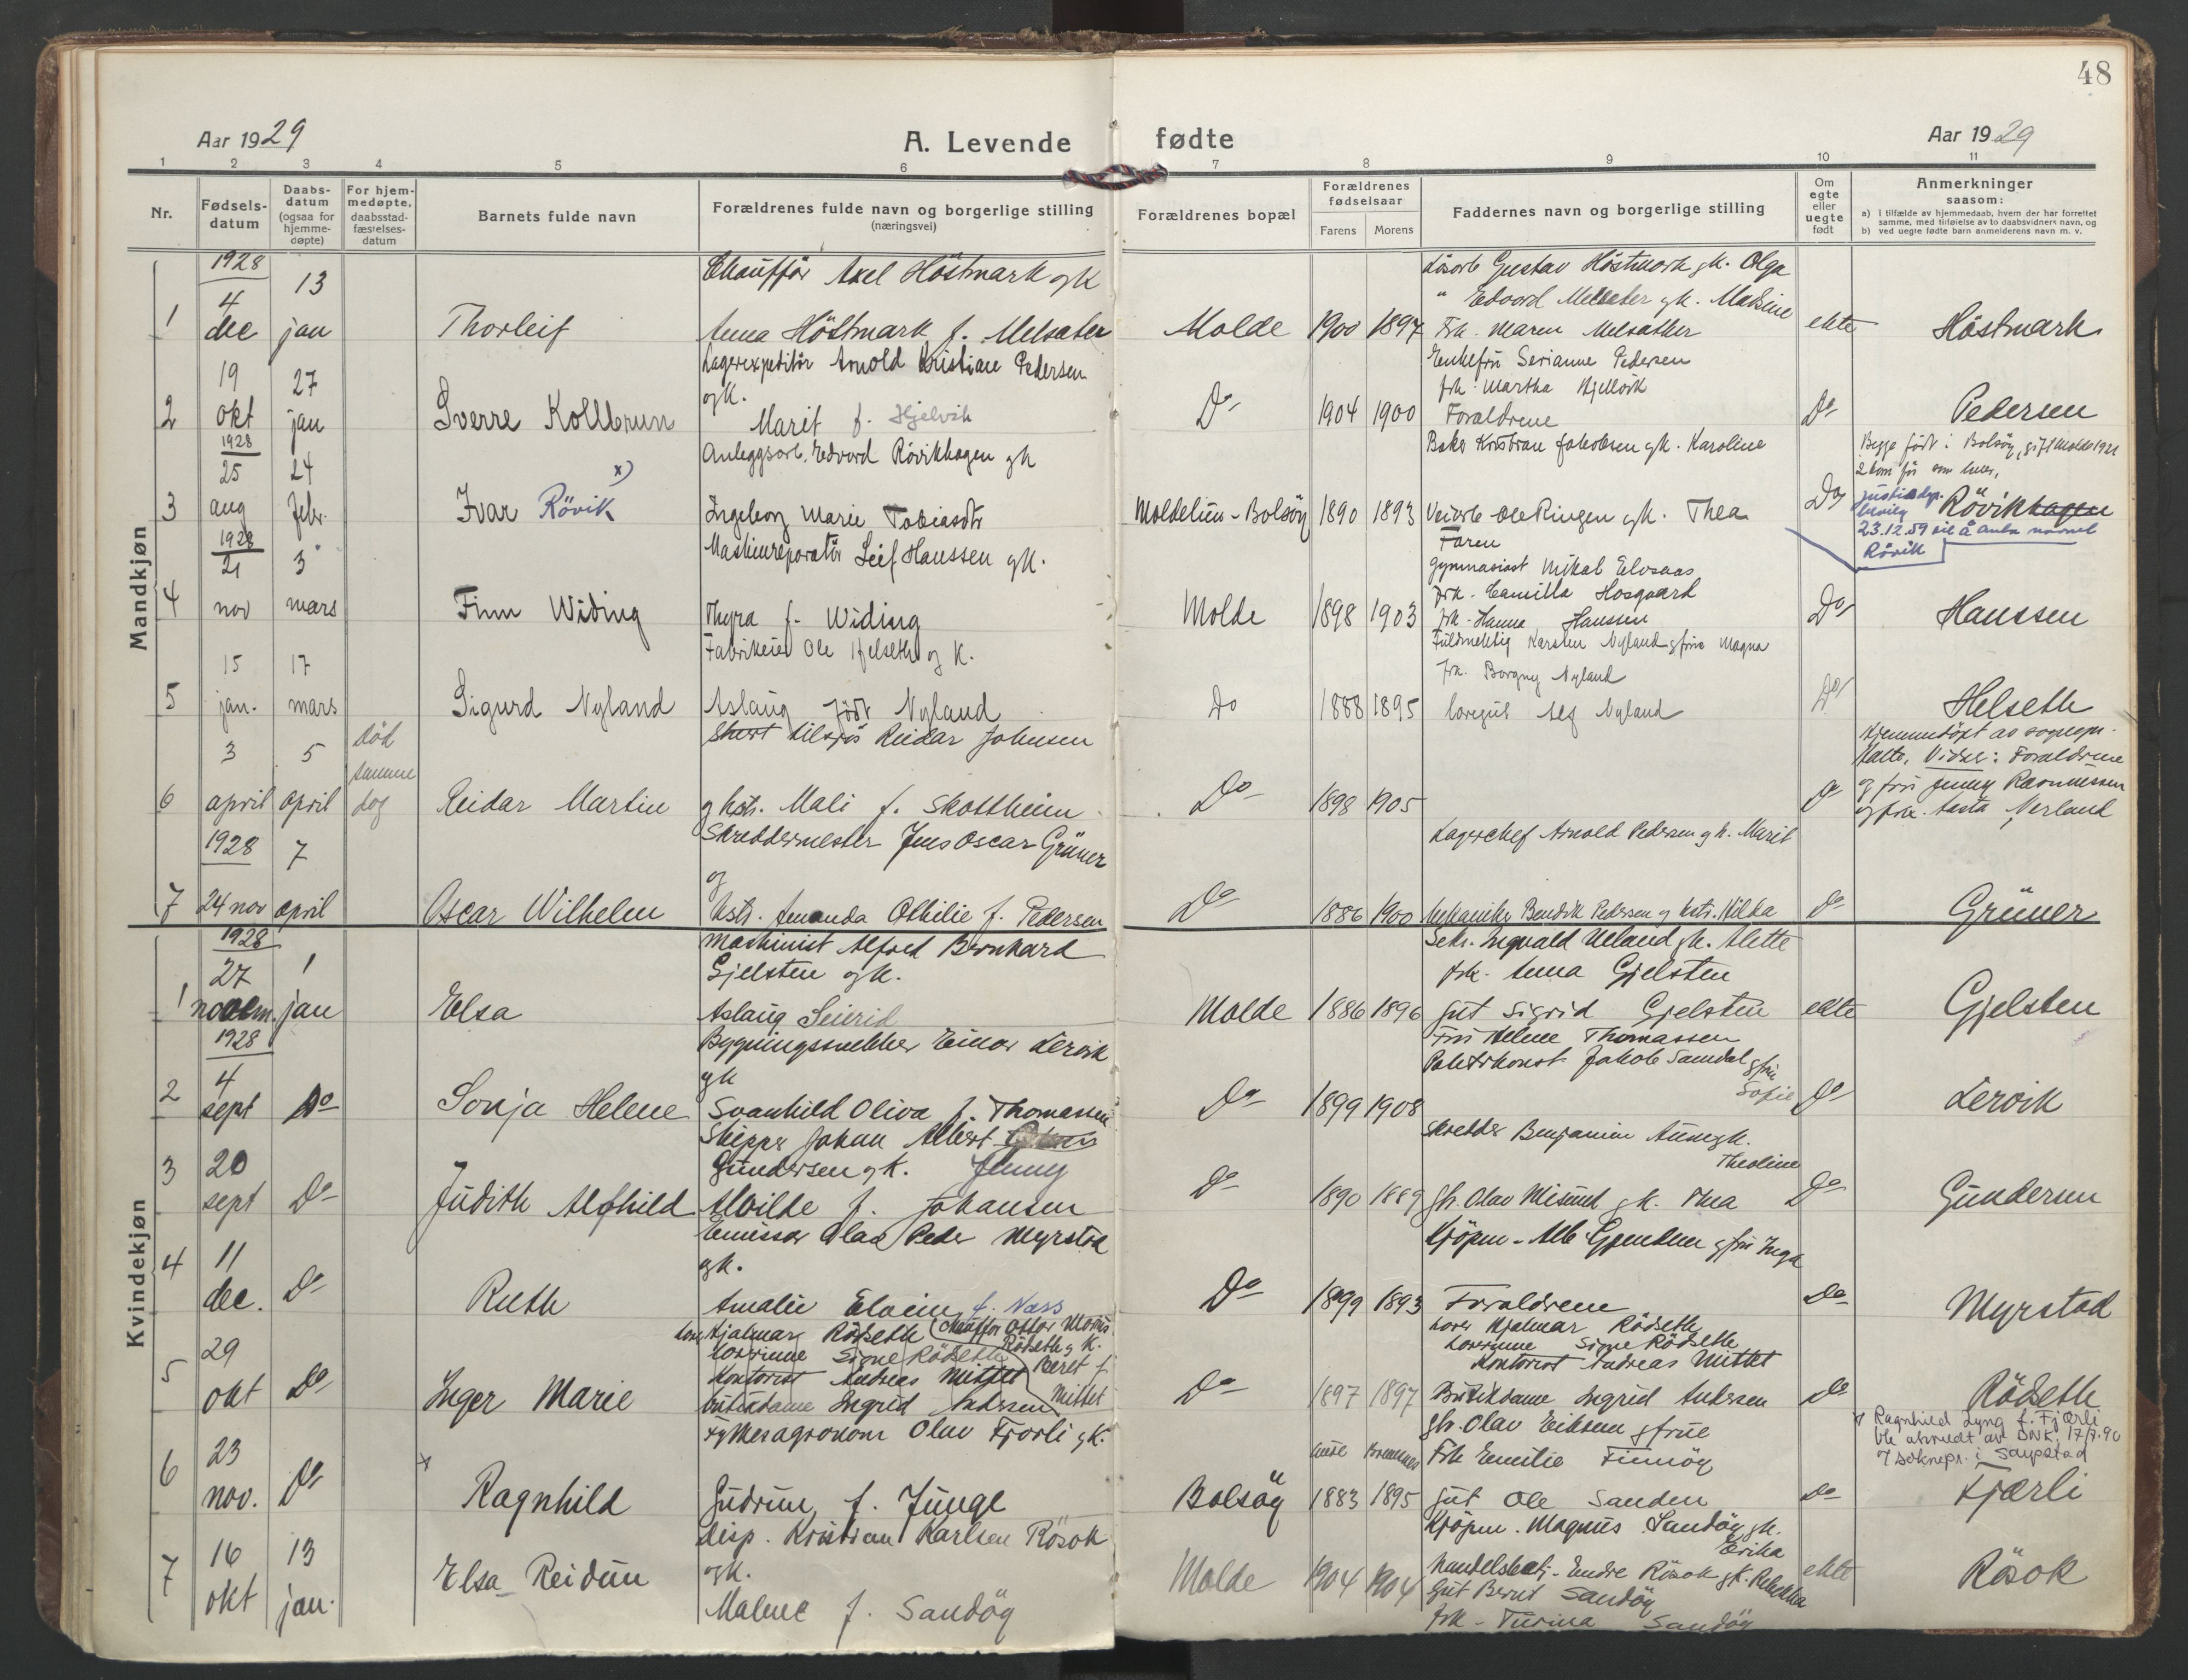 48
Aar 1929
A. Levende fødte
Aar 1929
1 2 3 4 5 6 7 8 9 10 11
Nr.
Fødsels-
datum
Daabs-
datum
(ogsaa for
hjemme-
døpte)
For hjem-
medøpte,
daabsstad-
fæstelses-
datum
Barnets fulde navn
Forældrenes fulde navn og borgerlige stilling
(næringsvei)
Forældrenes bopæl
Forældrenes
fødselsaar
Farens Morens
Faddernes navn og borgerlige stilling
Om
egte
eller
uegte
født
Anmerkninger
saasom:
a) i tilfælde av hjemmedaab, hvem der har forrettet
samme, med tilføielse av to daabsvidners navn, og
b) ved uegte fødte barn anmelderens navn m. v.
Mandkjøn
1
1928
4
dec
13
jan
Thorleif
Chauffør Axel Höstmark gk
Anna Höstmark f. Melsæter
Molde
1900 1897
Gustav Höstmark gk. Olga
" Edvard Melseter gk. Madsine
Frk. Maren Melsæther
ekte
Höstmark
2
19
okt
1928
27
jan
Sverre Kollbrun
Lagerexpeditör Arnold Kristian Pedersen
gk.
Marit f. Hjelvik
Do
1904 1900
Enkefru Serianne Pedersen
frk. Martha Hjellvik
Foraldrene
Do
Pedersen
3
25
aug
1928
24
febr.
Ivar Rövik x)
Anleggsarb. Edvard Rövikhagen gk
Ingeborg Marie Tobiasdtr
Moldelien - Bolsöy
1890 1893
Baker Kristian Jakobsen gk. Karoline
Veiarb Ole Ringen gk. Thea
Faren
Do
Begge født i Bolsöy, gift Molde 1921
2 barn før som lever,
Justisdep.
bevilg
Rövikhagen
23.12.59 til å anta navnet
Rövik
4
21
nov
3
mars
Finn Widing
Maskinreparatör Leif Hanssen gk.
Thyra f. Widing
Molde
1898 1903
Gymnasiast Mikal Elvsaas
Frk. Camilla Hosgaard
frk. Hanna Hanssen
Do
Hanssen
5
15
jan.
17
mars
Sigurd Nyland
Fabrikeier Ole Helseth og k.
Aslaug född Nyland
Do
1888 1895
Fuldmektig Karsten Nyland g frue Magna
Frk. Borgny Nyland
Alf Nyland
Do
Helseth
6
3
april
5
april
död
samme
dag
Reidar Martin
tilsjös Reidar Johnsen
g hstr. Mali f. Skottheim
Do
1898 1905
Do
Hjemmedöpt av sognepr.
Vidner: Foraldrene
og fru Jenny Rasmussen
og frk. Aasta Nerland
7
1928
24 nov
7
april
Oscar Wilhelm
Skreddermester Jens Oscar Grüner
og
hstr. Amanda Othilie f. Pedersen
Do
1886 1900
Lagerchef Arnold Pedersen g h. Marit
Mekaniker Bendik Pedersen g hstr. Hilda
do
Grüner
Kvindekjøn
1
1928
27
novem.
1
jan
Elsa
Maskinist Alfred Bernhard
Gjelsten gk.
Aslaug Seierid
Molde
1886 1896
Sekr. Ingvald Ulland gk. Alette
frk. Anna Gjelsten
Gut Sigrid Gjelsten
ekte
Gjelsten
2
1928
4
sept
Do
Sonja Helene
Bygningssnekker Einar Lervik
gk
Svanhild Oliva f. Thomassen
Do
1899 1908
Fru Helene Thomassen
Politikonst. Jakob Samdal g frue
Sofie
Do
Lervik
3
20
sept
Do
Judith Alfhild
Skipper Johan Albert
Gundersen gk. Jenny
Alvilde f. Johansen
Do
1890 1889
Skredder Benjamin Aune gk.
Theoline
Gb. Olav Misund gk. Thea
Do
Gundersen
4
11
dec.
Do
Ruth
Emissær Olav Peder Myrstad
gk.
Amalie Elvine f. Næss
Do
1899 1893
Kjöpm. Alb. Gjendem g frue Inga
Foraldrene
Do
Myrstad
5
29
okt
Do
Inger Marie
Hjalmar Rödseth (Chauffør Ottar Morits
Lærerinne Signe Rödseth Rödseth g k.
Kontorist Andreas Mittet Beret f.
Butikdame Ingrid Andersen Mittet
Do
1897 1897
Lærer Hjalmar Rödseth
Lærerinne Signe Rödseth
Kontorist Andreas Mittet
Butikdame Ingrid Andersen
Do
Rödseth
6
23
nov.
Do
x
Ragnhild
Fylkesagronom Olav Fjærli gk.
Gudrun f. Junge
Bolsöy
Aure Bremsnes
1883 1895
Gb. Olav Eiksun g frue
Frk Emilie Finnöy
Gut Ole Sanden
Do
x Ragnhild Lyng f. Fjærli
ble utmeldt av DNK. 17/7.90
v/ soknepr. i Saupstad
Fjærli
7
16
okt
13
jan.
Elsa Reidun
Disp. Kristian Karlsen Rösok
gk.
Malene f. Sandöy
Molde
1904 1904
Kjöpm. Magnus Sandöy gk.
Erika
Handelsbetj. Endre Rösok gk. Rebekka
Gut Bernt Sandöy
frk. Turina Sandöy
ekte
Rösok